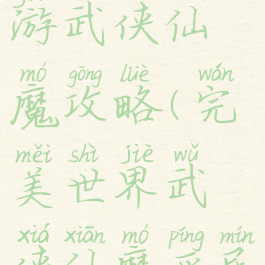 游武侠仙
mó gōng lüè wán
魔攻略(完
měi shì jiè wǔ
美世界武
xiá xiān mó píng mín
侠仙魔平民